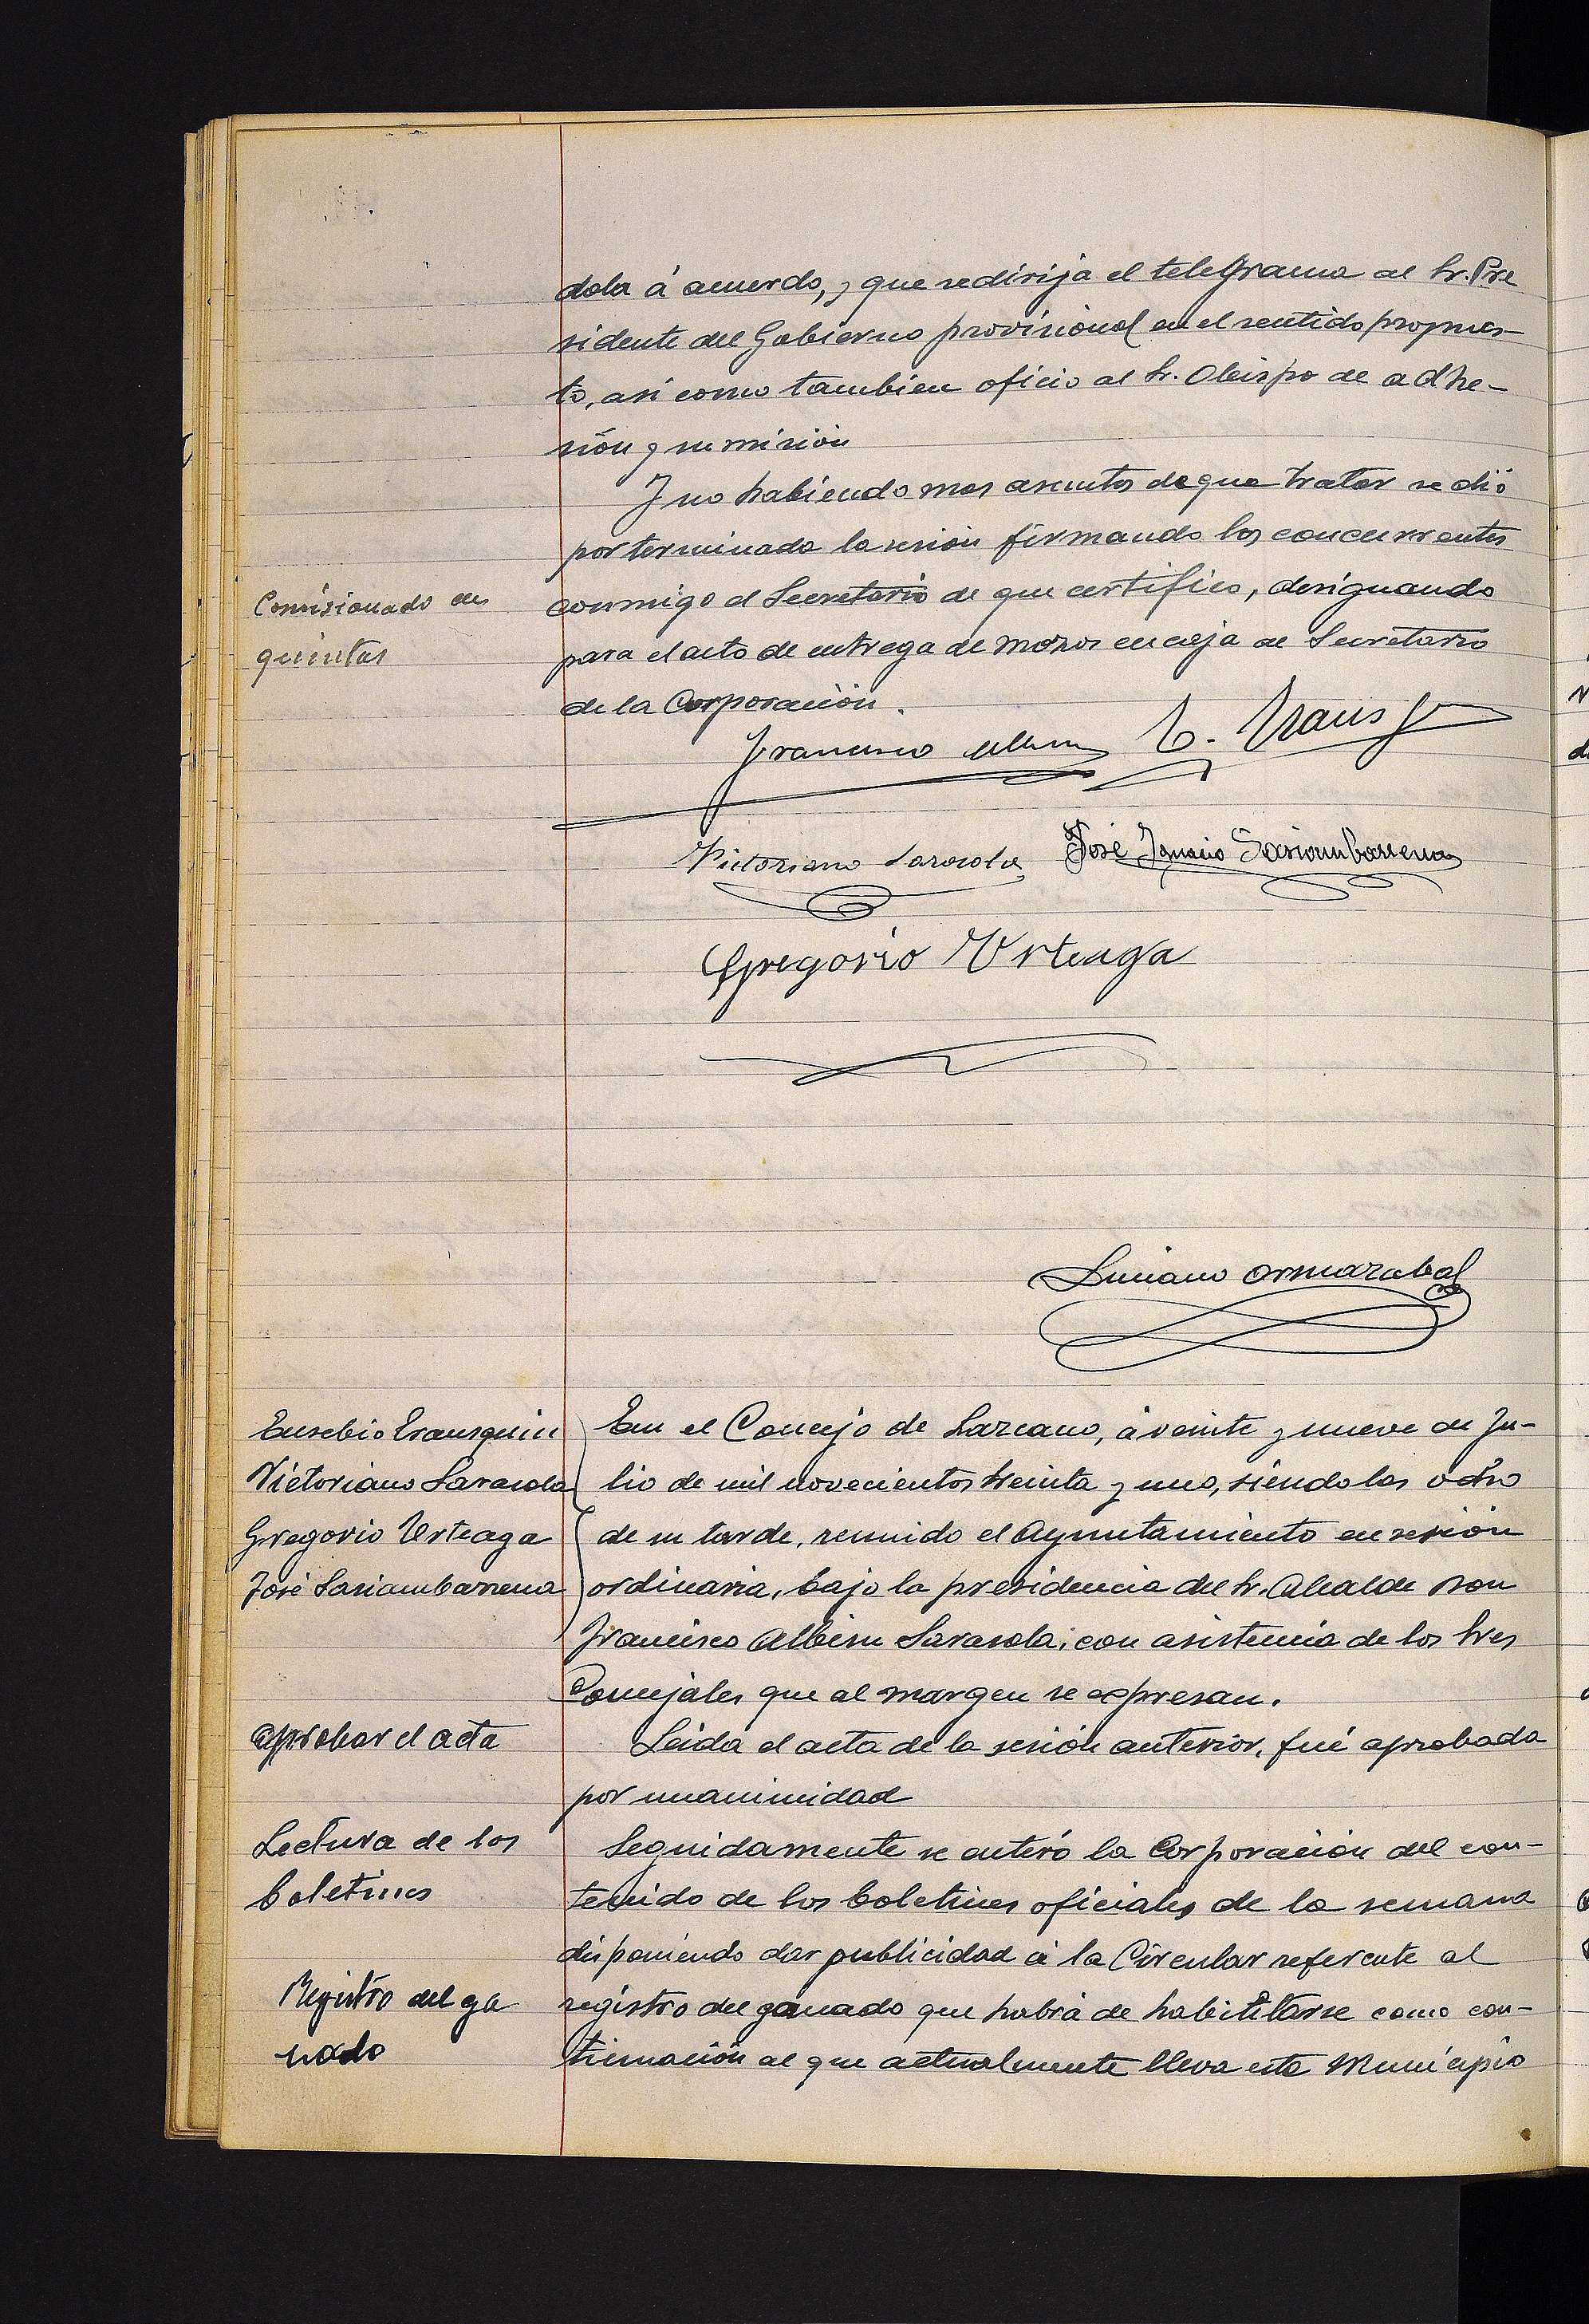 dola á acuerdo, y que se dirija el telegrama al Sr. Pre
sidente del Gobierno provisional en el sentido propues-
to, asi como tambien oficio al Sr. Obispo de adhe-
sión y sumisión
Y no habiendo mas asuntos de que tratar se dió
por terminada la sesión firmando los concurrentes
Comisionado en
quintas
conmigo el Secretario de que certifico, designando
para el acto de entrega de mozos en caja al Secretario
de la Corporación.
Francisco Albisu E. Irausq
Victoriano Sarasola José Ignacio Sasiambarrena
Gregorio Urteaga
Luciano Ormazabal
Eusebio Irausquin
Victoriano Sarasola
Gregorio Urteaga
José Sasiambarrena
En el Concejo de Lazcano, á veinte y nueve de Ju-
lio de mil novecientos treinta y uno, siendo las ocho
de su tarde, reunido el Ayuntamiento en sesión
ordinaria, bajo la presidencia del Sr. Alcalde Don
Francisco Albisu Sarasola, con asistencia de los Sres
Concejales que al margen se expresan.
Aprobar el acta
Leida el acta de la sesión anterior, fué aprobada
por unanimidad
Lectura de los
boletines
Seguidamente se enteró la Corporación del con-
tenido de los boletines oficiales de la semana
disponiendo dar publicidad á la Circular referente al
Registro del ga
nado
registro del ganado que habrá de habilitarse como con-
tinuación al que actualmente lleva este Municipio